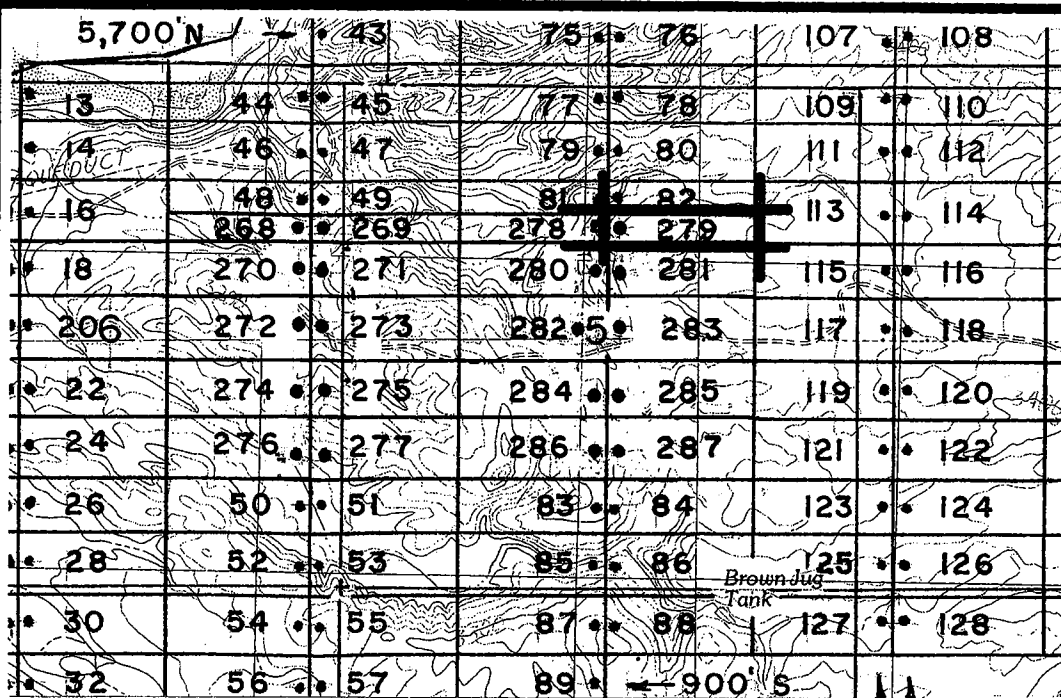 5,700'N 43 75 76 107 108
13 44 45 77 78 109 110
14 46 47 79 80 111 112
AQUEDUCT
16 48 49 81 82 113 114
268 269 278 279
18 270 271 280 281 115 116
206 272 273 282 5 283 117 118
22 274 275 284 285 119 120
24 276 277 286 287 121 122
26 50 51 83 84 123 124
28 52 53 85 86 125 126
Brown Jug
Tank
30 54 55 87 88 127 128
32 56 57 89 900' S